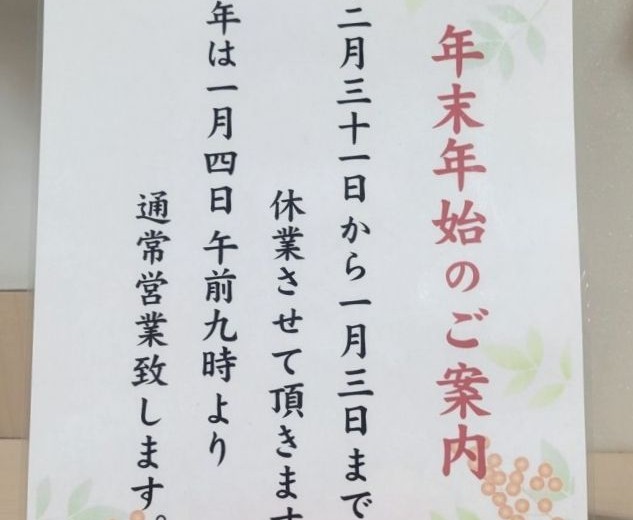 年末年始のご案内
二月三十一日から一月三日まで
休業させて頂きます
年は一月四日 午前九時より
通常営業致します。